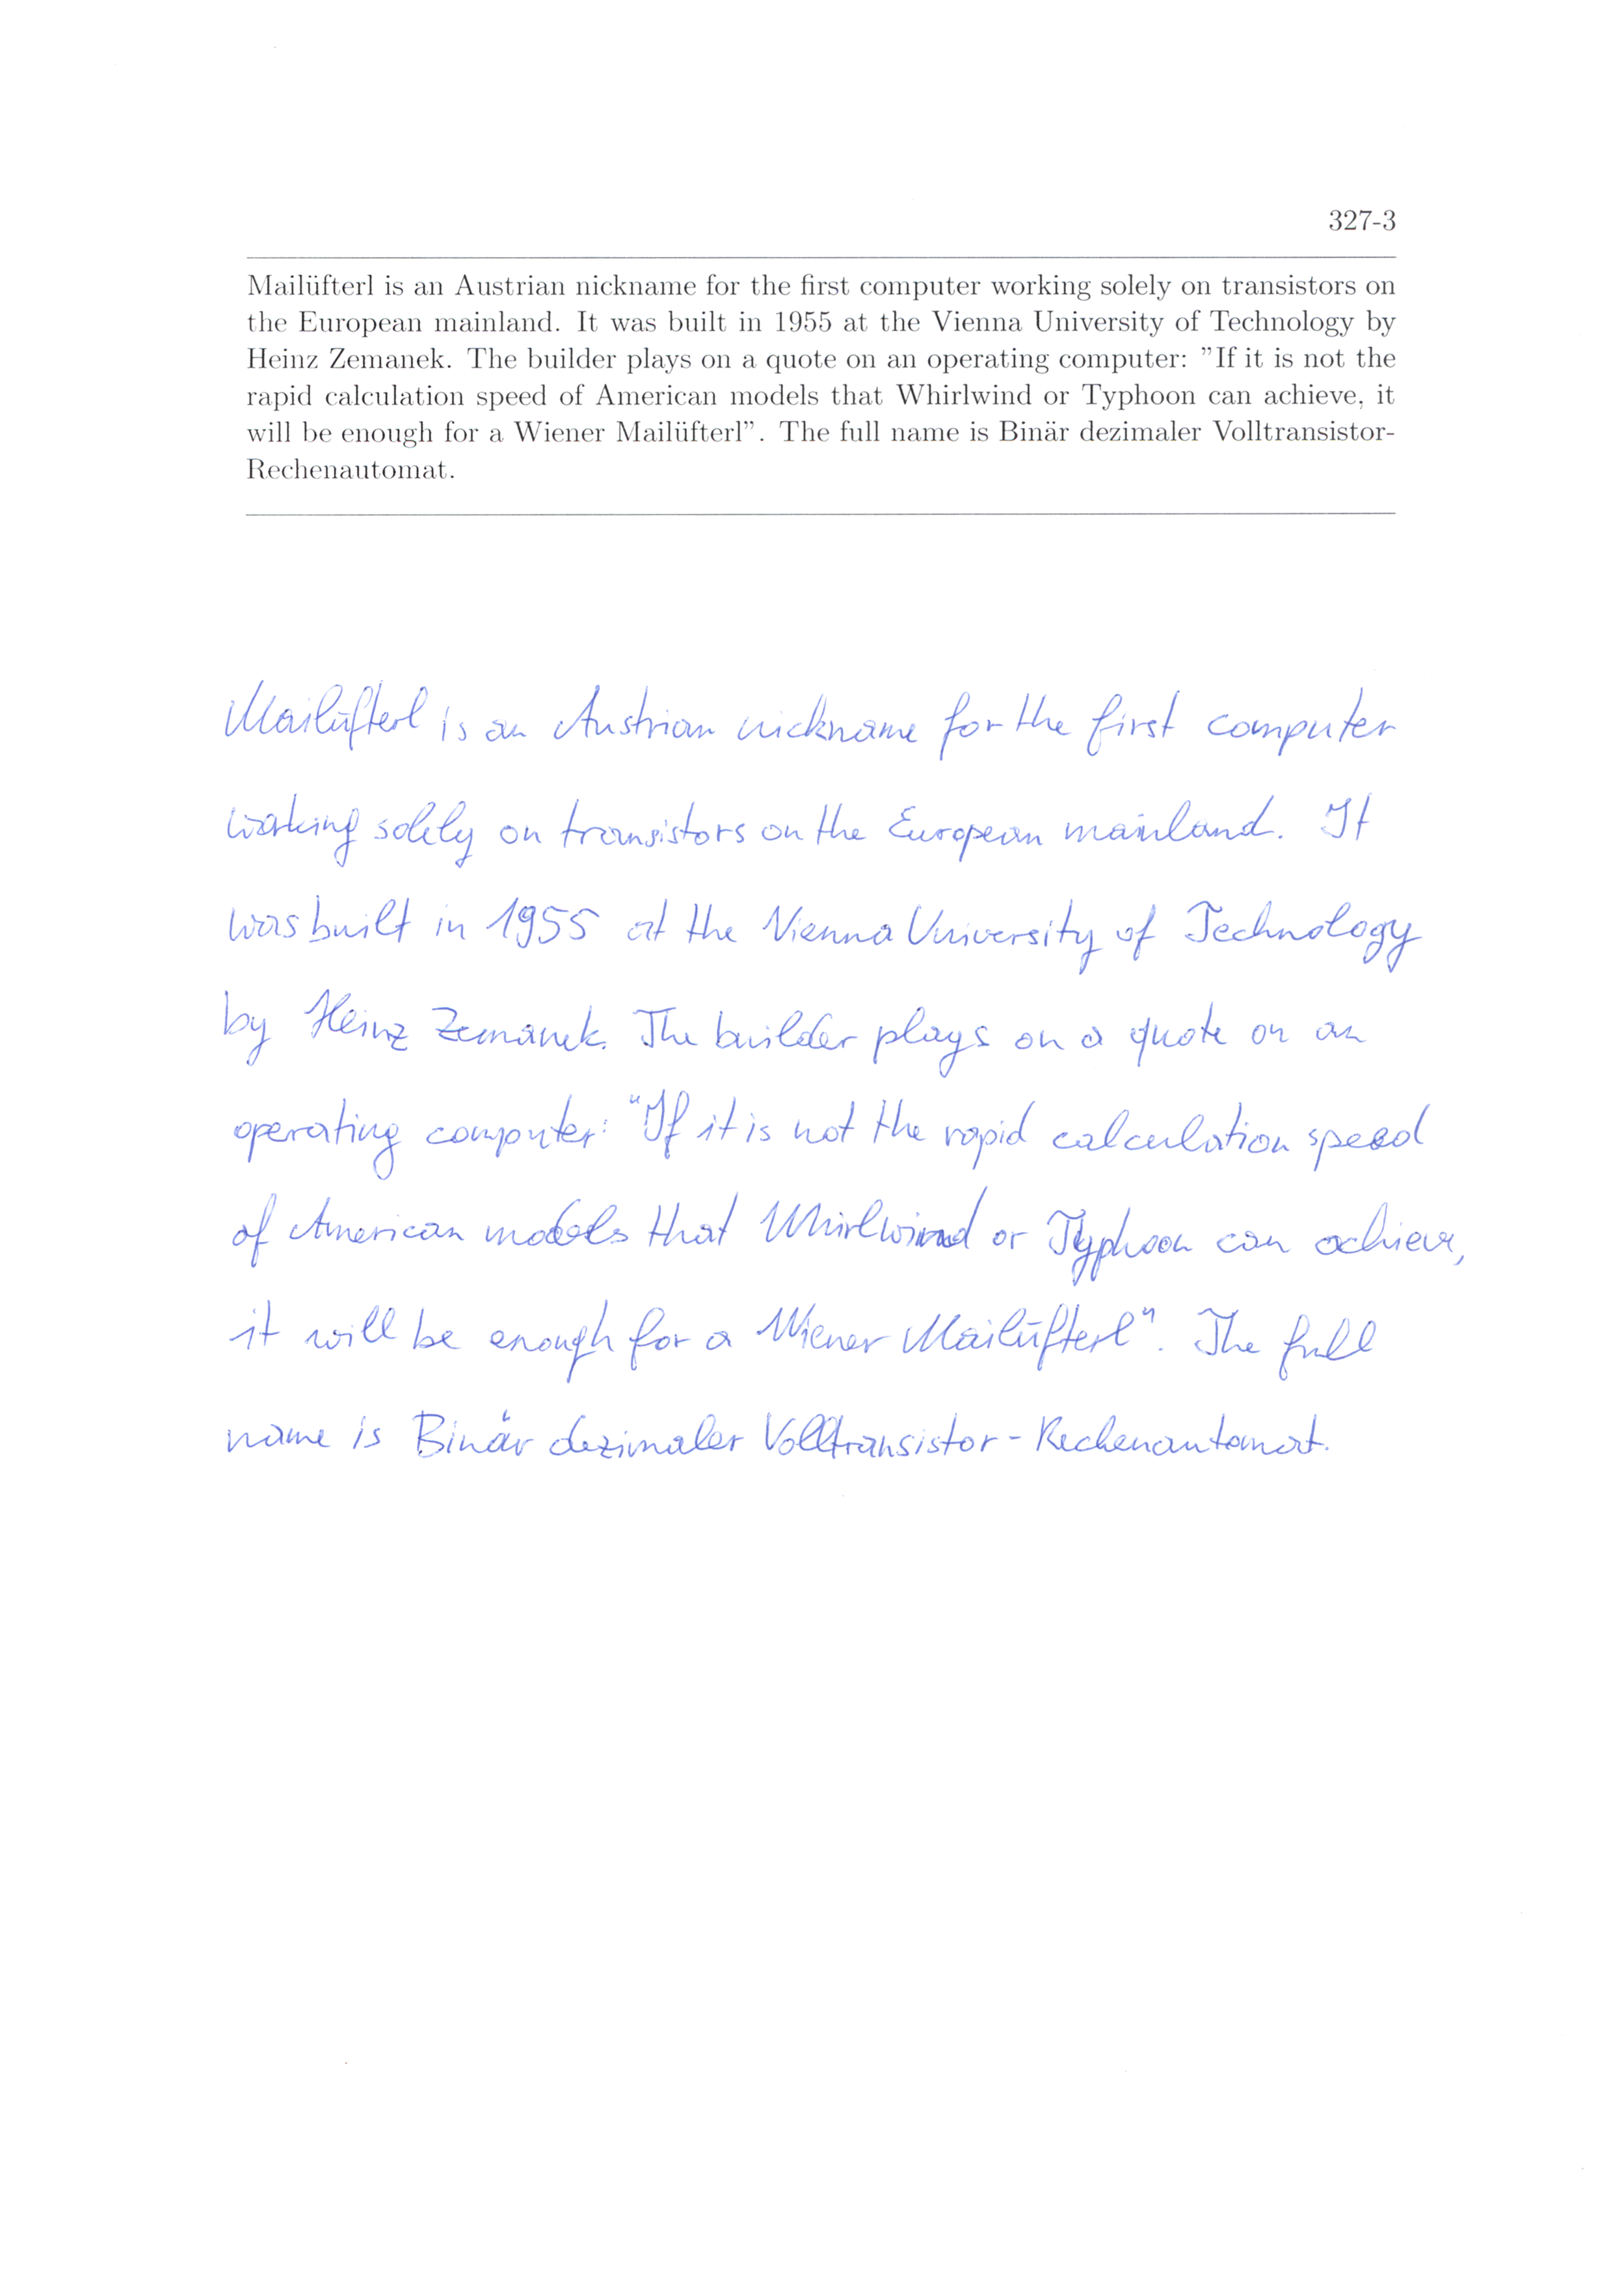 327-3
Mailüfterl is an Austrian nickname for the first computer working solely on transistors on
the European mainland. It was built in 1955 at the Vienna University of Technology by
Heinz Zemanek. The builder plays on a quote on an operating computer: "If it is not the
rapid calculation speed of American models that Whirlwind or Typhoon can achieve, it
will be enough for a Wiener Mailüfterl". The full name is Binär dezimaler Volltransistor-
Rechenautomat.
Mailüfterl is an Austrian nickname for the first computer
working solely on transistors on the European mainland. It
was built in 1955 at the Vienna University of Technology
by Heinz Zemanek. The builder plays on a quote on an
operating computer: "If it is not the rapid calculation speed
of American models that Whirlwind or Typhoon can achieve,
it will be enough for a Wiener Mailüfterl". The full
name is Binär dezimaler Volltransistor-Rechenautomat.